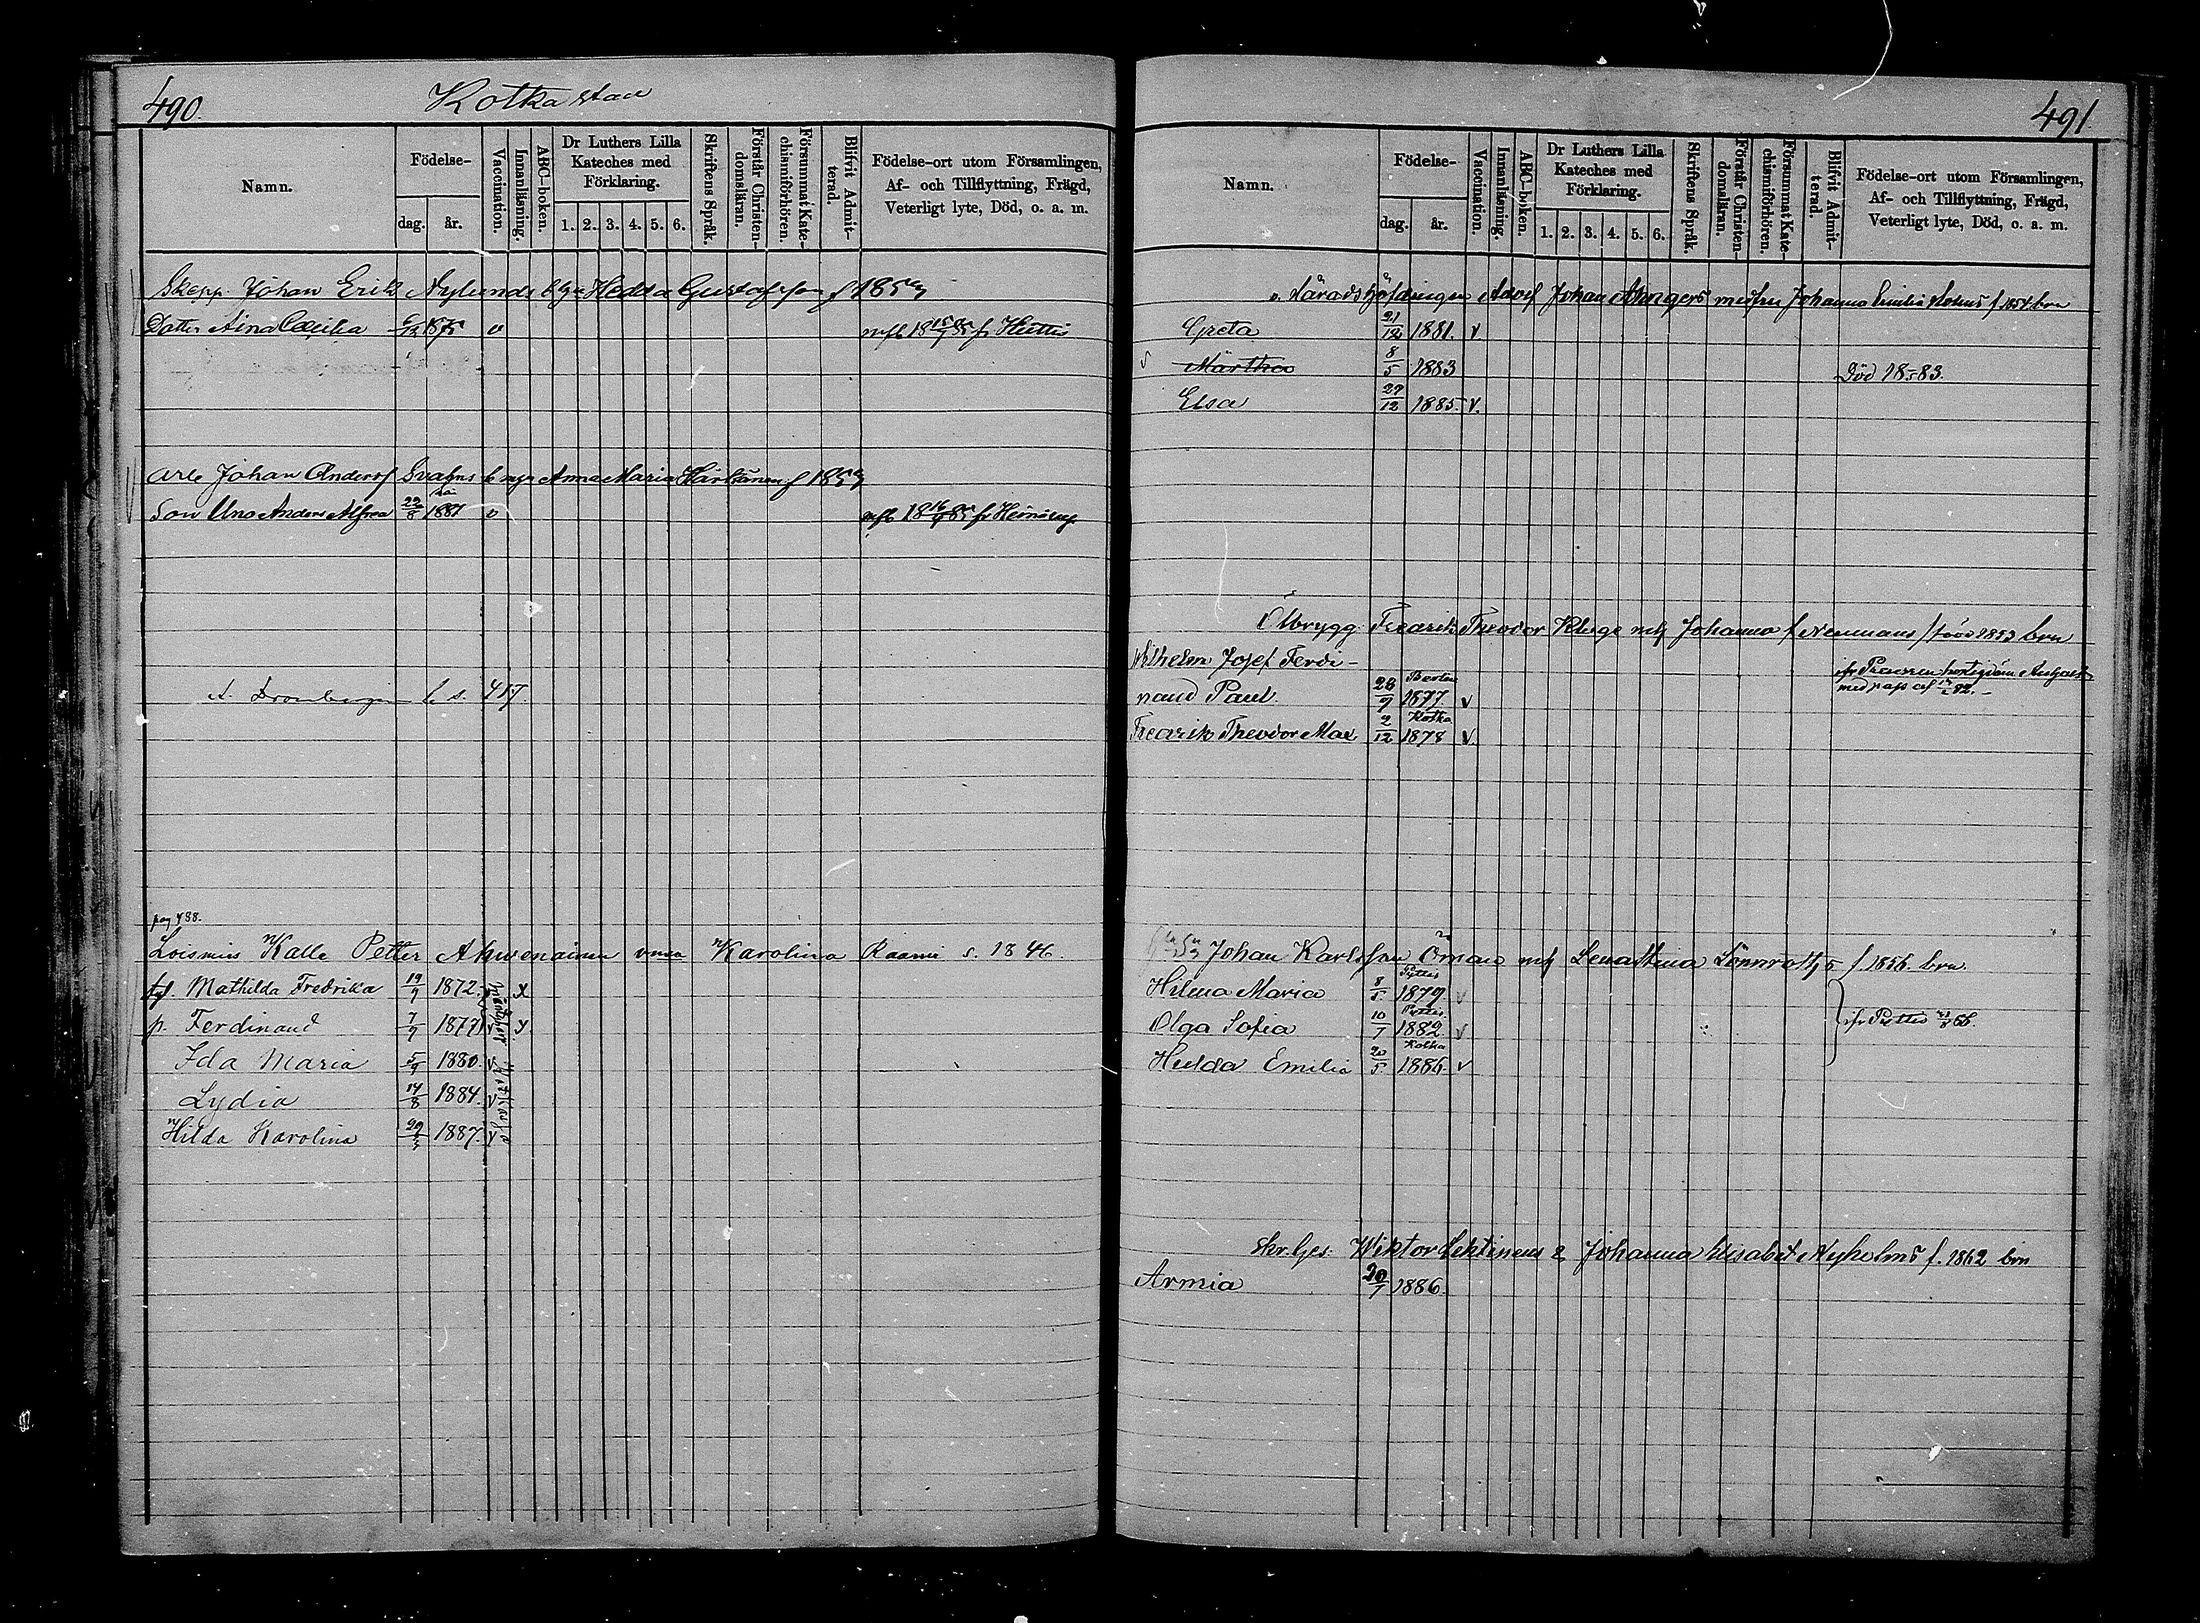 490.
Kotka stad
Namn.
Födelse-
dag.
år.
Vaccination.
Innanläsning.
ABC-boken.
Dr Luthers Lilla
Kateches med
Förklaring.
1. 2. 3. 4. 5. 6.
Skriftens Språk.
Förstår Christen-
domsläran.
Försummat Kate-
chismiförhören.
Blifvit Admit-
terad.
Födelse-ort utom Församlingen,
Af- och Tillflyttning, Frägd,
Veterligt lyte, Död, o. a. m.
Skepp. Johan Erik Nylunds Hedda Gustafsson f 1859
Dotter Aina Cæcilia 1875 v
Arb Johan Anders Svahns Anna Maria f 1859
Son Uno Anders Alfred 22/8 1881 v
A. b. s. 417.
pag 438.
Loismies Kalle Petter Ahvenainen vmoa Karolina Raami s. 1846.
ty. Mathilda Fredrika 19/9 1872. x
p. Ferdinand 7/9 1877 v
Ida Maria 5/9 1880. v
Lydia 14/8 1884. v
Hilda Karolina 29/3 1887. v
491.
Namn.
Födelse-
dag.
år.
Vaccination.
Innanläsning.
ABC-boken.
Dr Luthers Lilla
Kateches med
Förklaring.
1. 2. 3. 4. 5. 6.
Skriftens Språk.
Förstår Christen-
domsläran.
Försummat Kate-
chismiförhören.
Blifvit Admit-
terad.
Födelse-ort utom Församlingen,
Af- och Tillflyttning, Frägd,
Veterligt lyte, Död, o. a. m.
v. Häradshöfdingen Adolf Johan Johanna Emilia f 1854 brn
Greta 21/12 1881. v.
Märtha 8/5 1883 Död 18 83.
Elsa 27/12 1885. v.
Ölbrygg. Fredrik Theodor Kluge Johanna f Neumans född 1853 brn
Wilhelm Josef Ferdi-
nand Paul. 28/9 Berlin 1877. v
med pass af 82.
Fredrik Theodor Max 2/12 Kotka 1878 v.
Johan Karlsson Öman Lena Stina Lönnrot f. 1856. brn.
Helena Maria 8/5 Pyttis 1879. v
Olga Sofia 10/7 Pyttis. 1882. v ifr Pyttis
Hulda Emilia 20/5 Kotka 1886. v
Skr. Ges. Wiktor Lektinens & Johanna Elisabet Nyholms f. 1862 brn
Armia 20/7 1886.